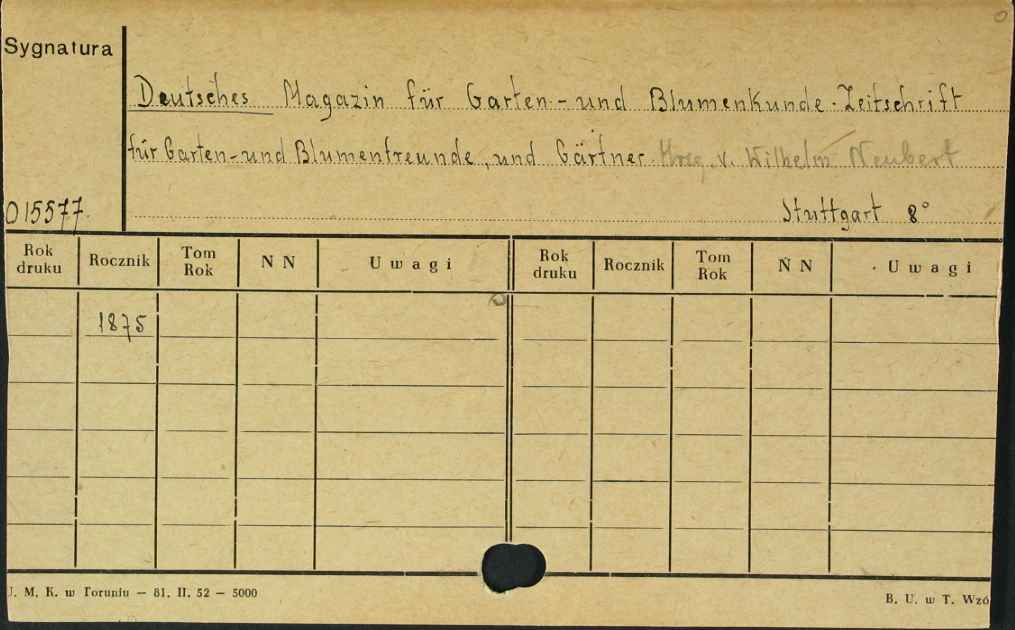 Sygnatura
Deutsches Magazin für Garten- und Blumenkunde. Zeitschrift
für Garten- und Blumenfreunde, und Gärtner. Hrsg. v. Wilhelm Neubert
015577.
Stuttgart 8°
Rok druku Rocznik Tom Rok NN Uwagi Rok druku Rocznik Tom Rok NN Uwagi
1875
U. M. K. w Toruniu — 81. II. 52 — 5000
B. U. w T. Wzó